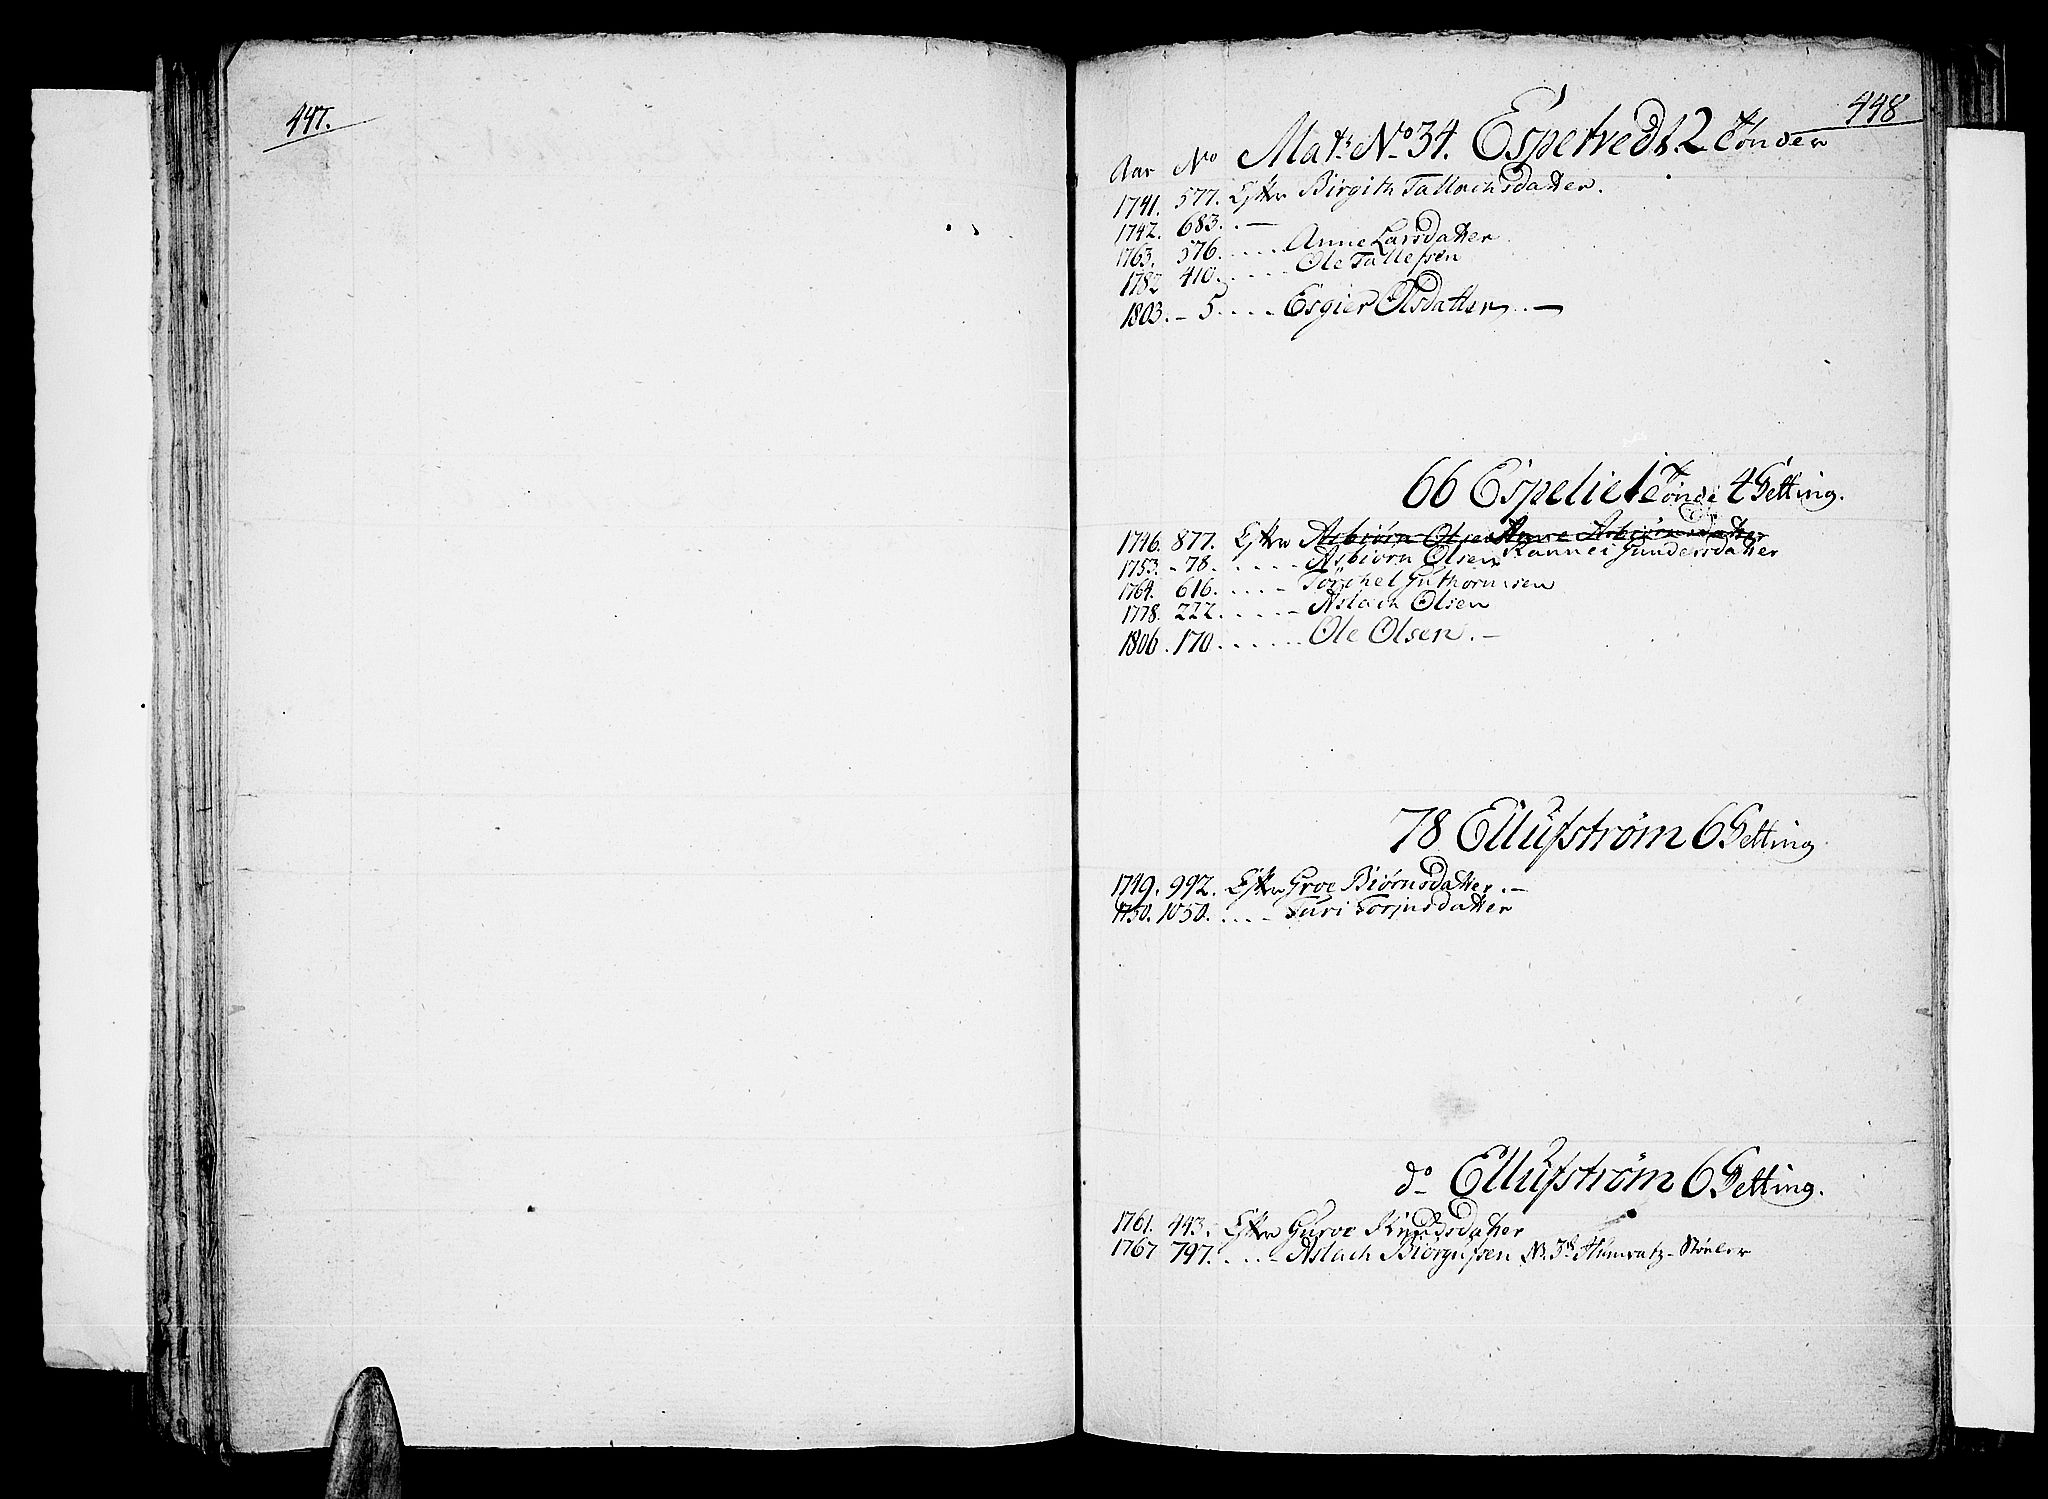 447.
448
Aar No Matr No 34. Espetvedt. 2 Tønder
1741. 577. Efter Birgith Tallachsdatter.
1742. 683. . —
1763. 576. . . . . . Anne Larsdatter
1782 410. . . . . . Ole Tallefsen
1803. - 5. . . . . Esgier Olsdatter . . —
66 Espelie 1 Tønde 4 Setting.
1746. 877. Efter Asbiørn Olsen Anne Asbiørnsdatter
Rannei Gundersdatter
1753. - 78. . . . . . Asbiørn Olsen
1764. 616. . . . . . Torchel Guthormsen
1778. 222. . . . . . Aslach Olsen
1806. 170. . . . . . Ole Olsen. —
78 Ellufstrøm 6 Setting
1749. 992. Efter Groe Biørnsdatter. —
1750. 1050. . . . . Turi Torjusdatter
do Ellufstrøm 6 Setting.
1761. 443. Efter Guroe Knudsdatter
1767 797. . . . . Aslach Biørgufsen